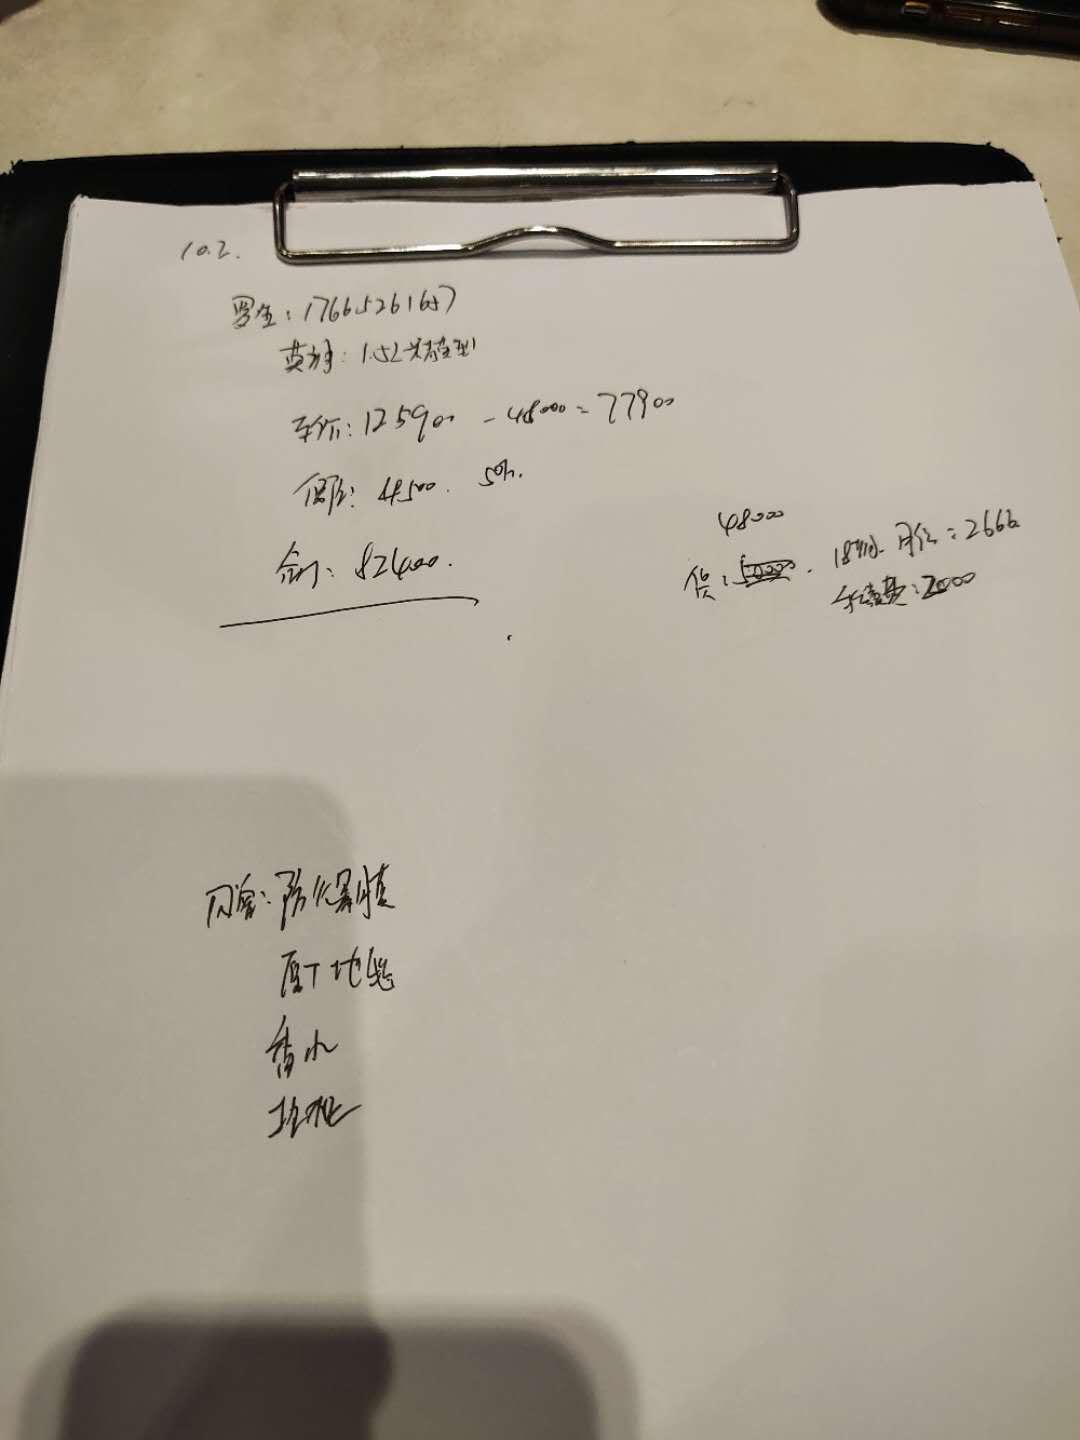 10.2.
罗生：17665261657
英诗：1.5L 精英型
车价：125900 - 48000 = 77900
保险：4500. 50h.
合计：82400.
48000
货：50000. 18期. 月供：2666
手续费：2000
防爆膜
地毯
香水